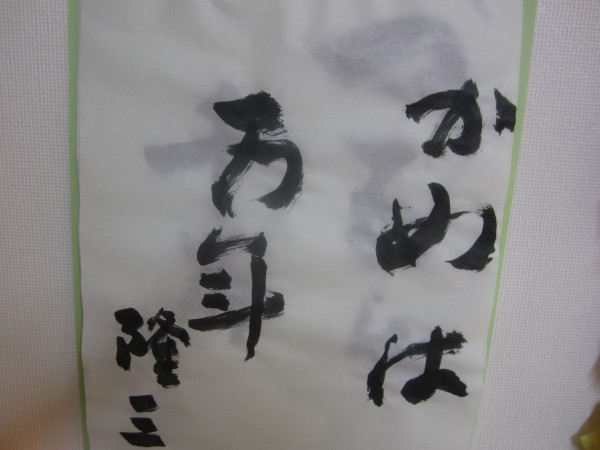 かめは
万年
隆三